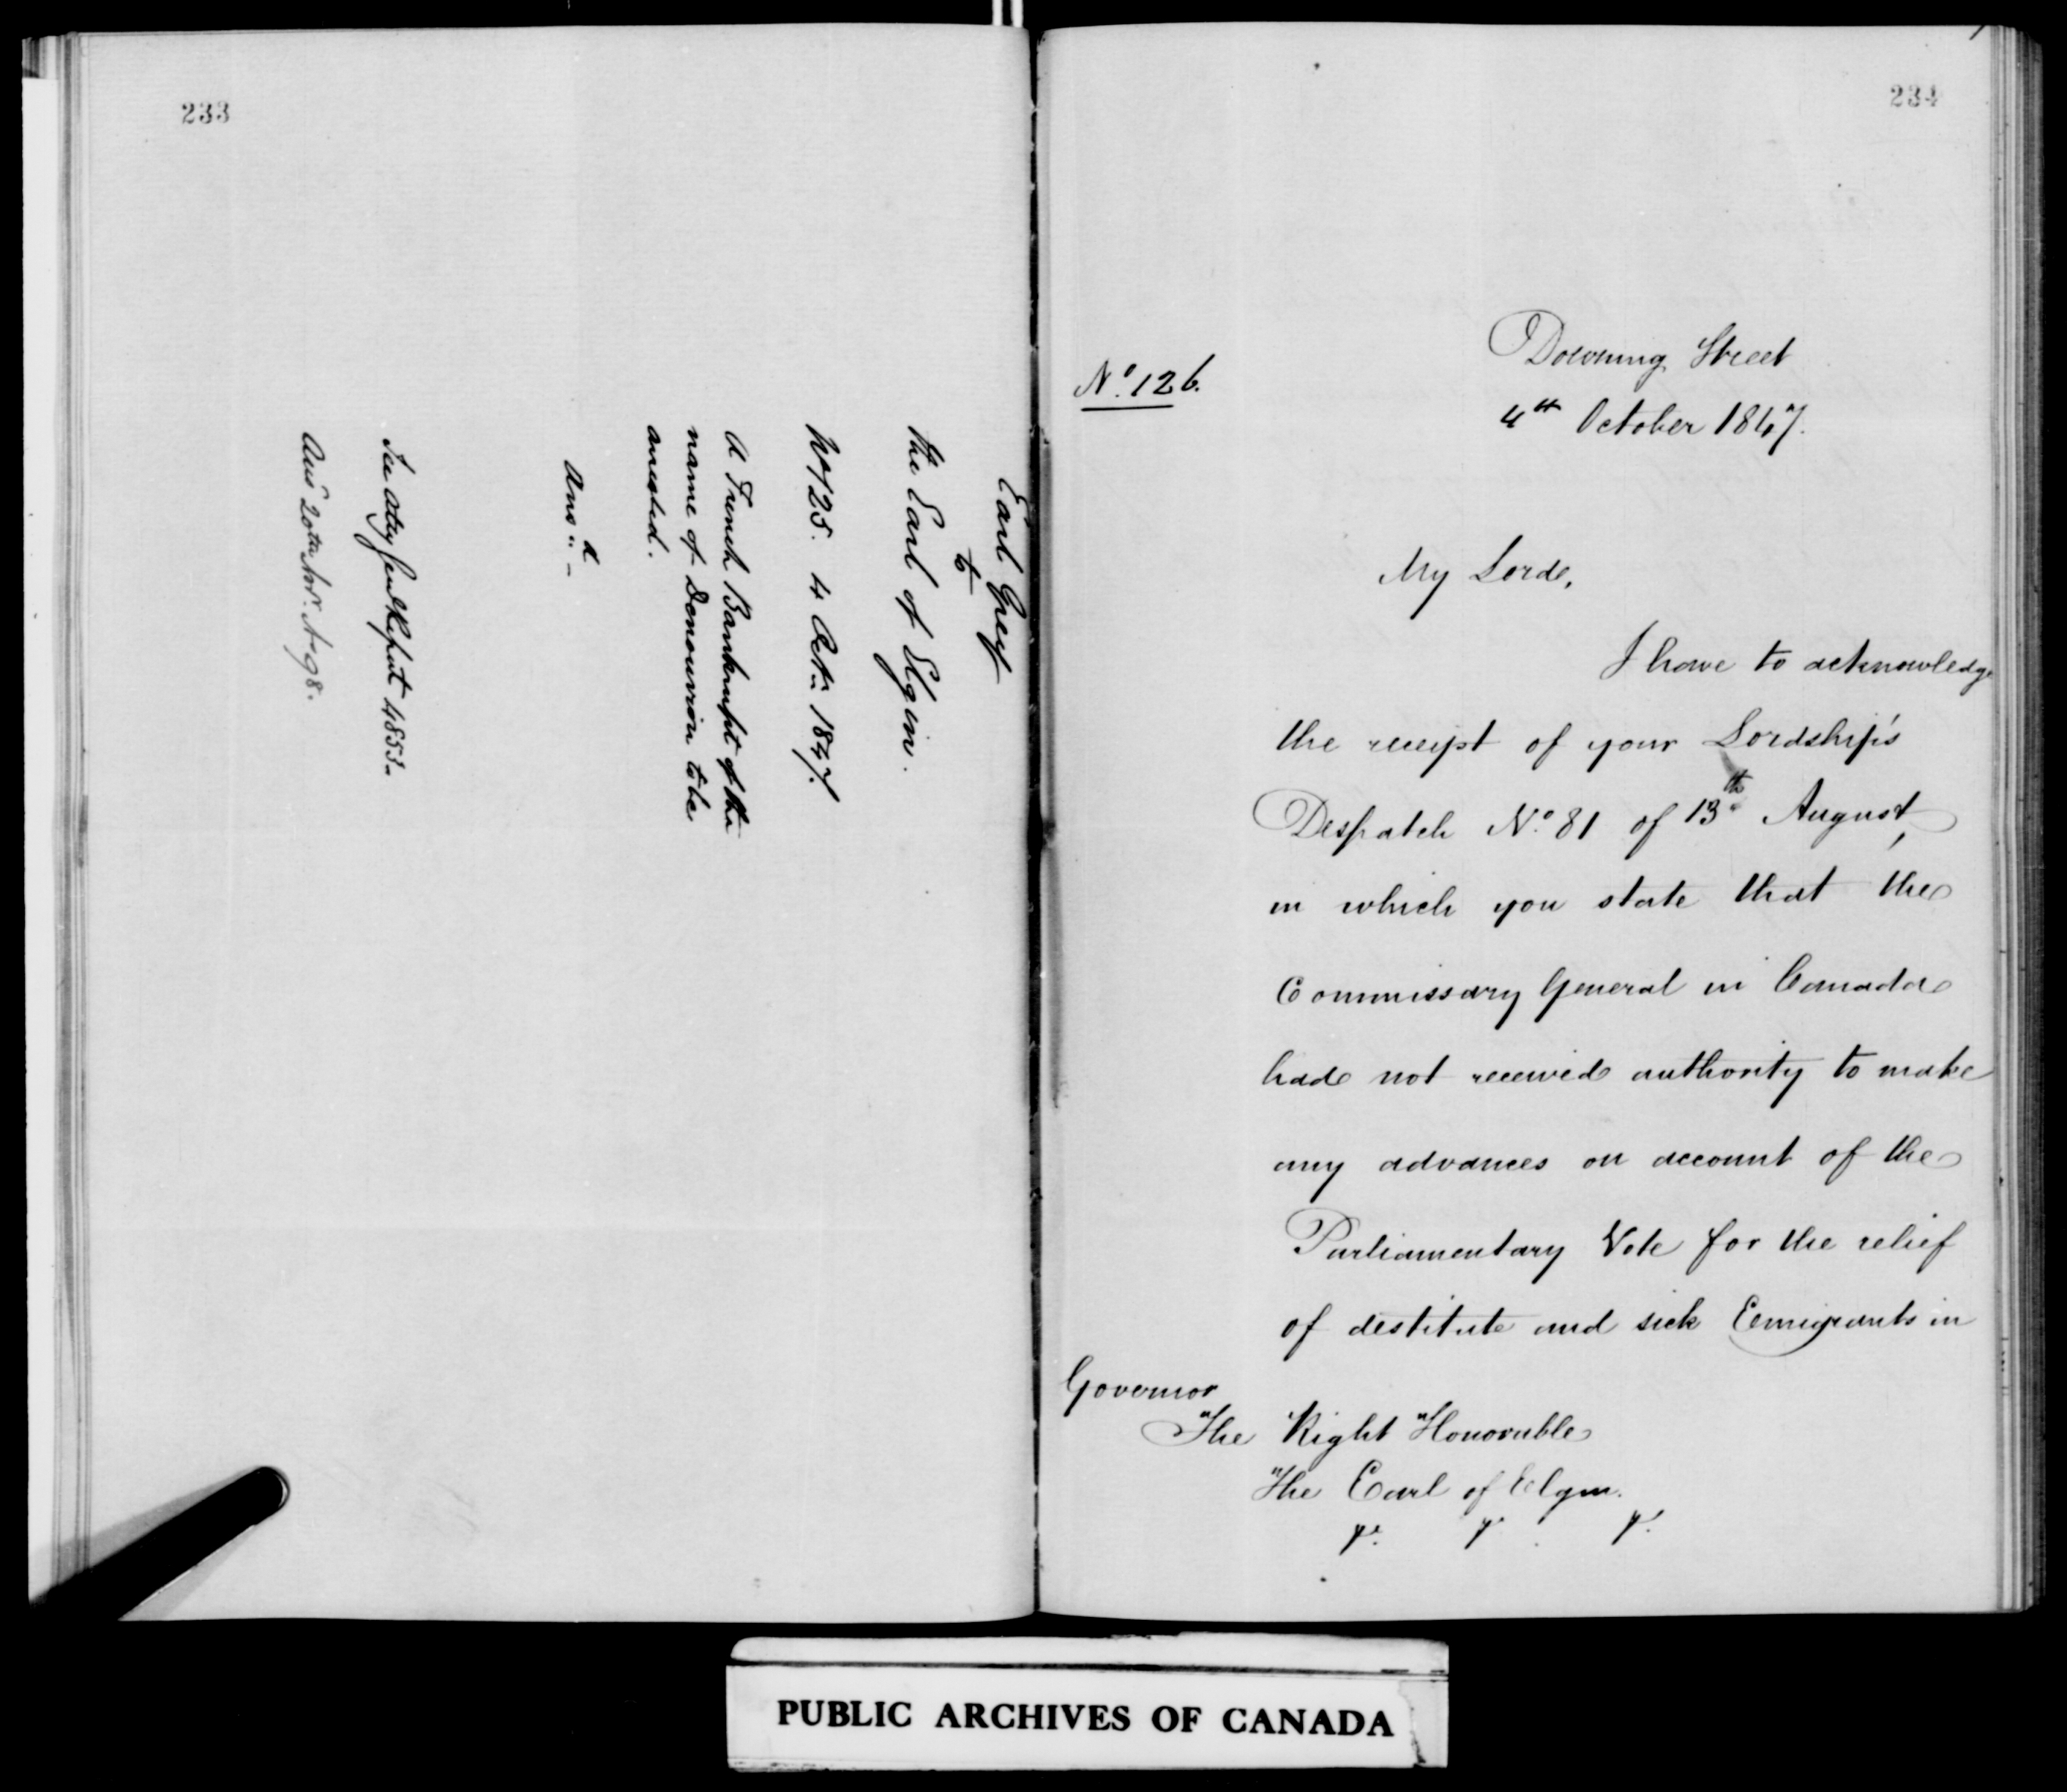 233
Earl Grey
to
The Earl of Elgin.
No 125. 4 Octr. 1847.
A French Bankrupt of the
name of Denouvion to be
arrested.
Ansd.. –
See Atty Genl Report 4853.
Ans 20th Novr. No 98.
234
No. 126.
Downing Street
4th October 1847.
My Lord,
I have to acknowledge
the receipt of your Lordship's
Despatch No. 81 of 13th August,
in which you state that the
Commissary General in Canada
had not received authority to make
any advances on account of the
Parliamentary Vote for the relief
of destitute and sick Emigrants in
Governor
The Right Honorable
The Earl of Elgin.
PUBLIC ARCHIVES OF CANADA